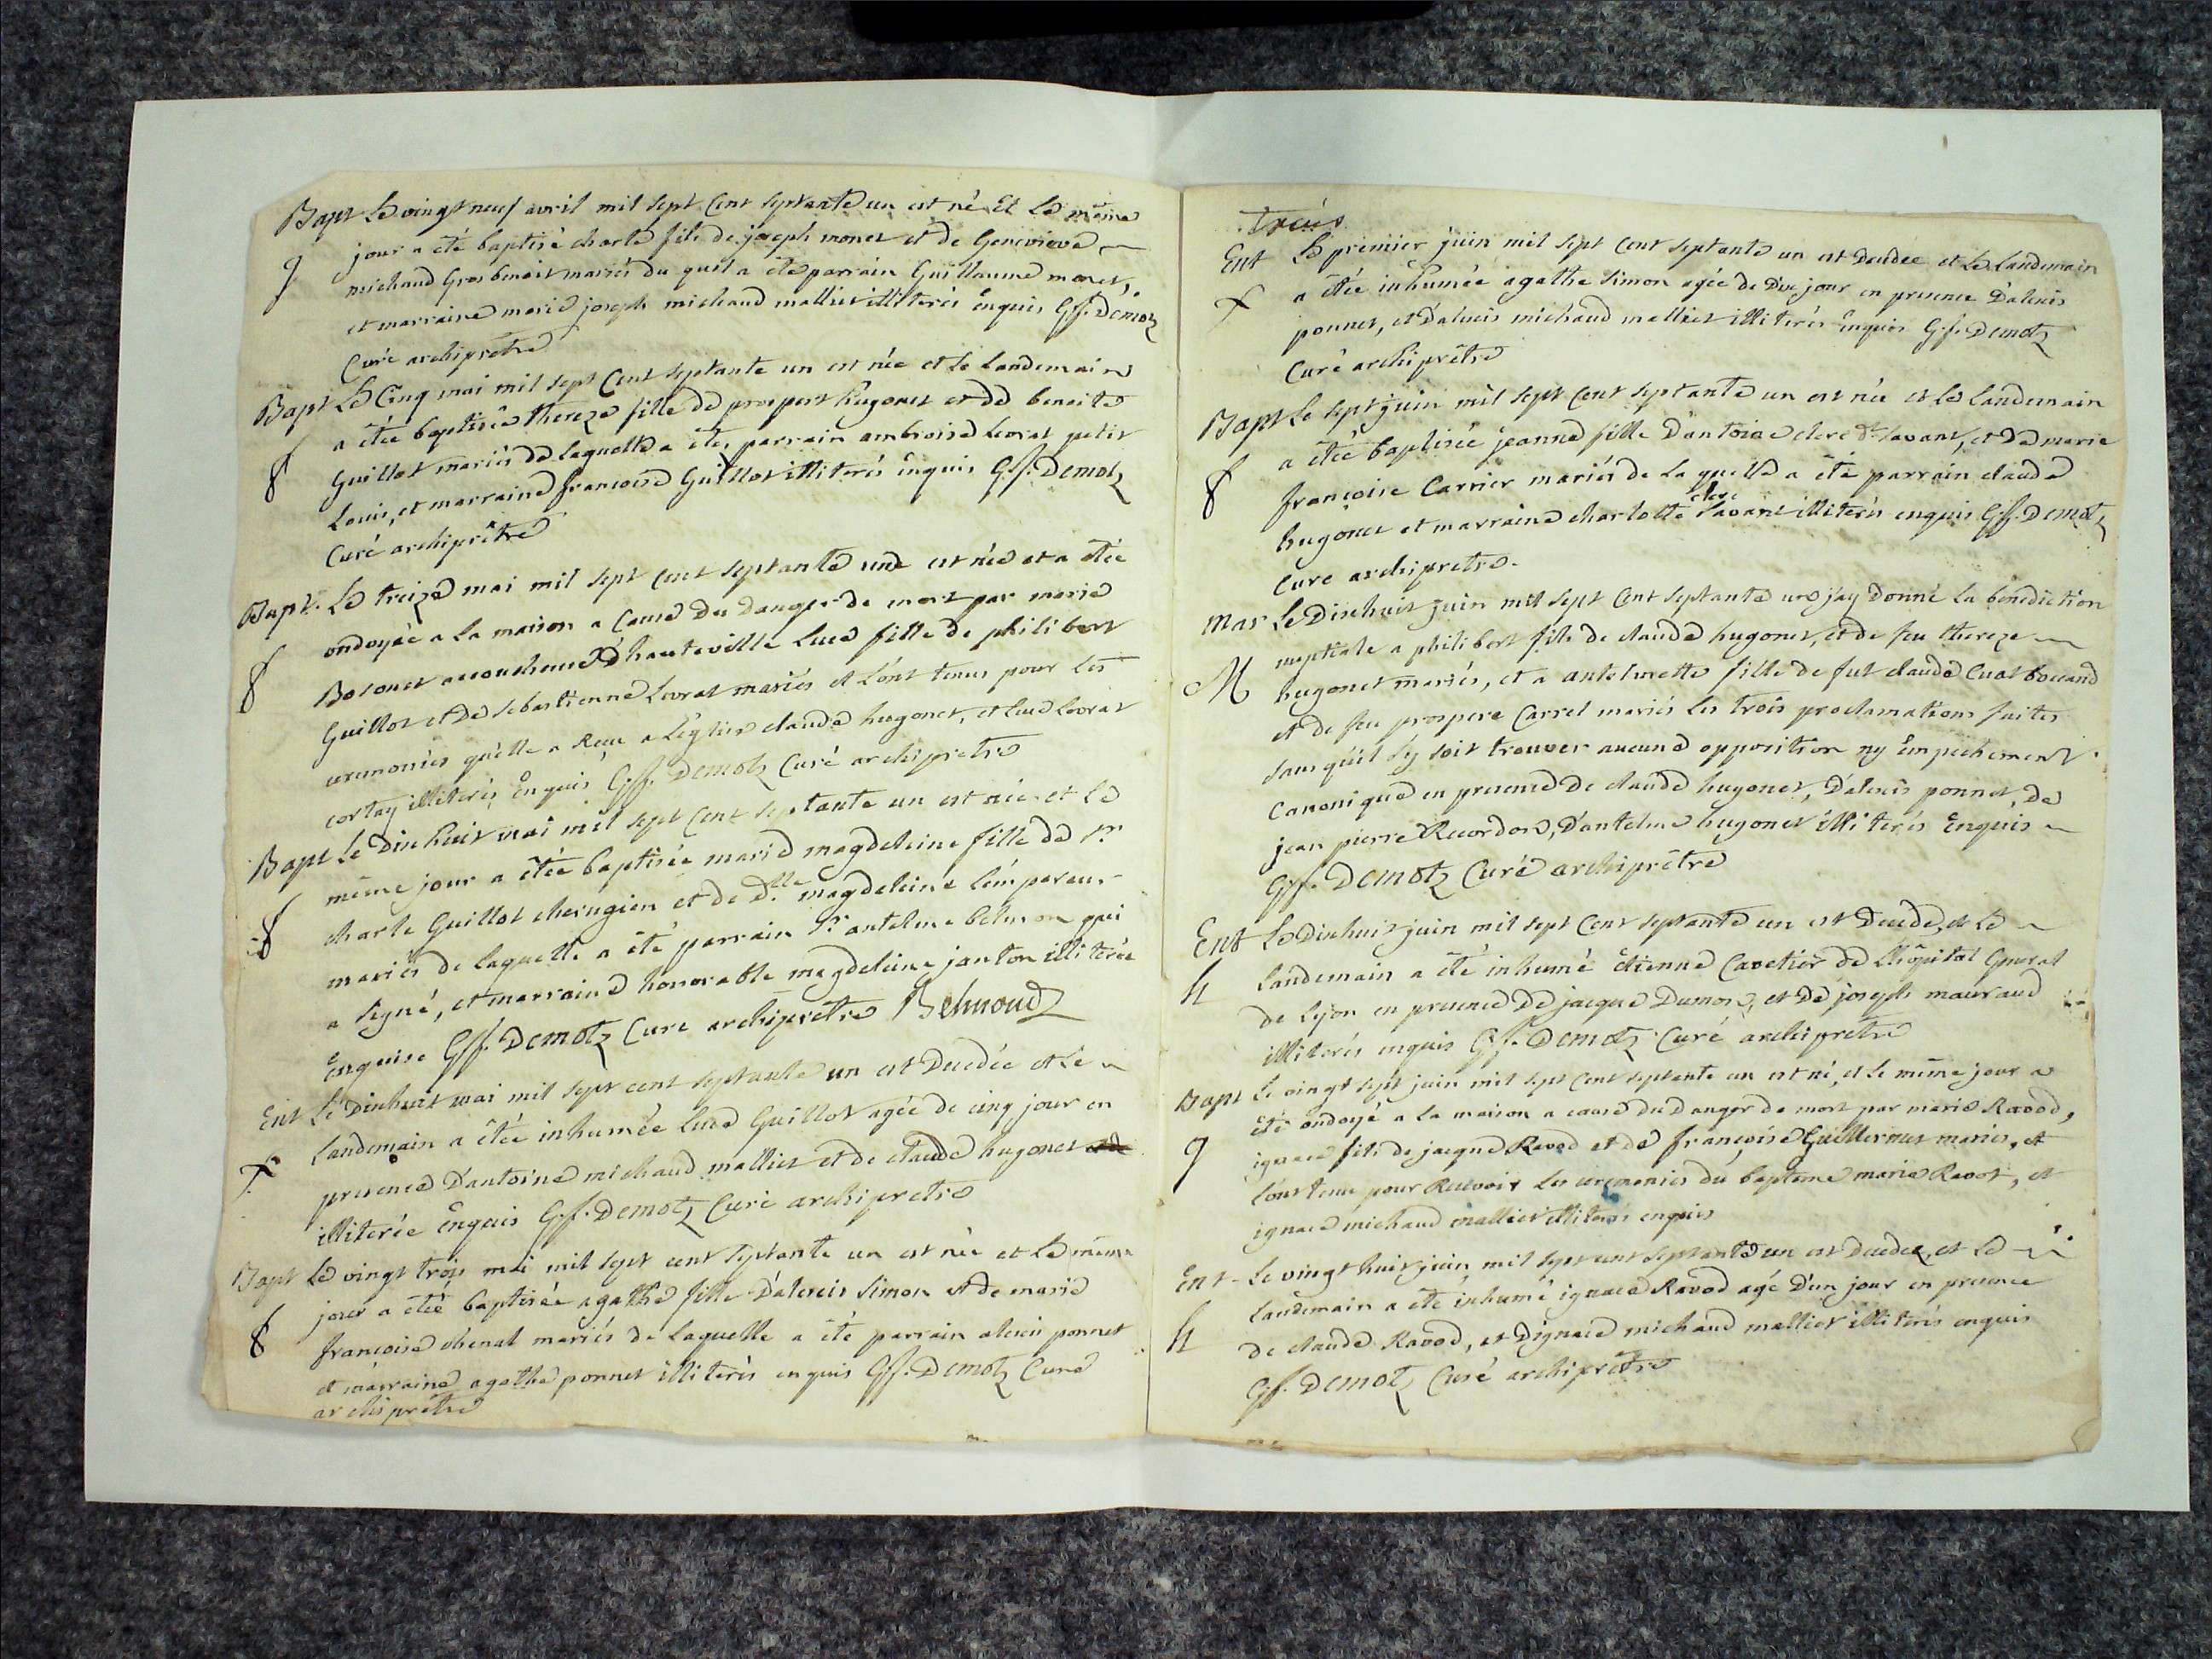 Bapt Le vingt neuf avril mil sept Cent septante un est né Et le même
jour a été baptisé charle fils de joseph monet et de Genevieve
g michaud Gros benoit mariés du quel a été parrain Guillaume monet,
et marraine marie joseph michaud mallier illiterés enquis G.f. Demotz
Curé archiprêtre
Bapt Le Cinq mai mil sept Cent septante un est née et le landemain
a étée baptisée thereze fille de prospert hugonet et de benoite
f Guillot mariés de laquelle a étés parrain ambroise Levrat petit
Louis, et marraine francoise Guillot illiterés enquis G.f. Demotz
Curé archiprêtre
Bapt. Le treize mai mil sept cent septante une est née et a étée
ondoyée a la maison a Cause du danger de mort par marie
f Bosonet accoucheuse d'hauteville Luce fille de philibert
Guillot et de sebastienne Levrat mariés et l'ont tenus pour les
ceremonies qu'elle a Recu a l'eglise claude hugonet, et luce levrat
cortay illiterés enquis G.f. Demotz Curé archipretre
Bapt Le dixhuit mai mil sept Cent septante un est née et le
même jour a étée baptisée marie magdeleine fille de Sr
f charle Guillot cherugien et de Dlle magdeleine l'empereur
mariés de laquelle a été parrain Sr antelme belmon qui
a signé, et marraine honorable magdeleine janton illiterée
enquise G.f. Demotz Cure archiprêtre Belmond
Ent Le Dixhuit mai mil sept cent septante un est Decedée et le
landemain a étée inhumée Luce Guillot agée de cinq jour en
presence D'antoine michaud mallier et de claude hugonet
illiterée enquis G.f. Demotz Curé archipretre
Bapt Le vingt trois mai mil sept cent septante un est née et le même
jour a étée baptisée agathe fille D'alexis Simon et de marie
f francoise chenal mariés de laquelle a été parrain alexis ponnet
et marraine agathe ponnet illiterés enquis G.f. Demotz Curé
archiprêtre
trois
Ent Le premier juin mil sept Cent septante un est Decedée et le landemain
a étée inhumée agathe Simon agée de Dix jour en presence D'alexis
ponnet, et D'alexis michaud mallier illiterés enquis G.f. Demotz
Curé archiprêtre
Bapt Le sept juin mil sept Cent septante un est née et le landemain
a étée baptisée jeanne fille D'antoine clerc dt Savant, et de marie
f françoise Carrier mariés de la quelle a été parrain claude
clerc
hugonet et marraine charlotte Savant illiterés enquis G.f. Demotz
Cure archipretre.
Mar Le Dixhuit juin mil sept Cent septante un jay Donné la benediction
nuptiale a philibert fils de claude hugonet, et de feu thereze
M hugonet mariés, et a antelmette fille de fut claude Cuat bouand
et de feu prospere Carrel mariés les trois proclamations faites
sans qu'il s'y soit trouver aucune opposition ny empechement
canonique en presence de claude hugonet, D'alexis ponnet, de
jean pierre Recordon, D'antelme hugonet illiterés Enquis
G.f. Demotz Curé archiprêtre
Ent Le Dixhuit juin mil sept Cent septante un est Decede, et le
h landemain a été inhumé étienne Cavetier de l'hôpital General
de Lyon en presence de jacque Dumon, et de joseph mauraud
illiterés enquis G.f. Demotz Curé archiprêtre
Bapt Le vingt sept juin mil sept Cent septante un est né, et le même jour a
été ondoyé a la maison a cause du Danger de mort par marie Ravod,
g ignace fils de jacque Ravod et de françoise Guillermet mariés, et
l'ont tenu pour Recevoir les ceremonies du bapteme marie Ravot, et
ignace michaud mallier illiterés enquis
Ent- Le vingt huit juin mil sept cent septante un est Decedez, et le
landemain a été inhumé ignace Ravod agé D'un jour en presence
h de claude Ravod, et D'ignace michaud mallier illiterés enquis
G.f. Demotz Curé archiprêtre